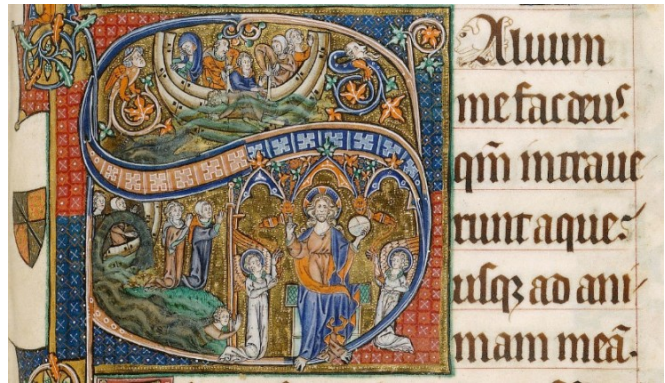 Aluum
me fac deus
qm̄ intraue
runt aque
usqꝫ ad ani
mam meā.